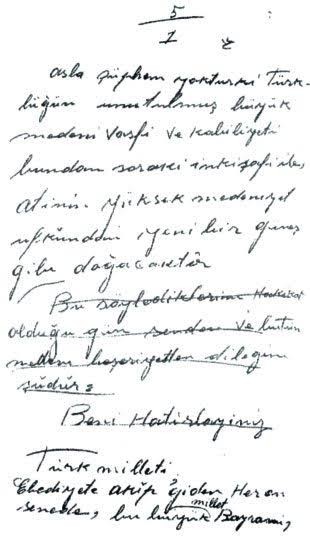 5
1
asla şüphem yokturki Türk-
lüğün unutulmuş büyük
medeni vasfi ve kabiliyeti
bundan sonraki inkişafi ile,
atinin yüksek medeniyet
ufkundan yeni bir güneş
gibi doğacaktır
Bu söylediklerim Hakikat
olduğu gün senden ve bütün
medeni beşeriyetten dileğim
şudur:
Beni Hatırlayınız
Türk milleti
Ebediyete akıp giden Heron
senede, bu büyük millet Bayramini,